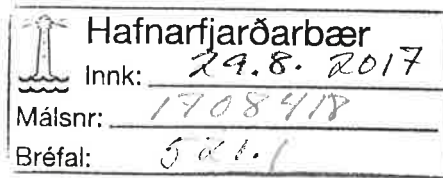 Hafnarfjarðarbær
Innk: 29.8. 2017
Málsnr: 1708418
Bréfal: 521.1